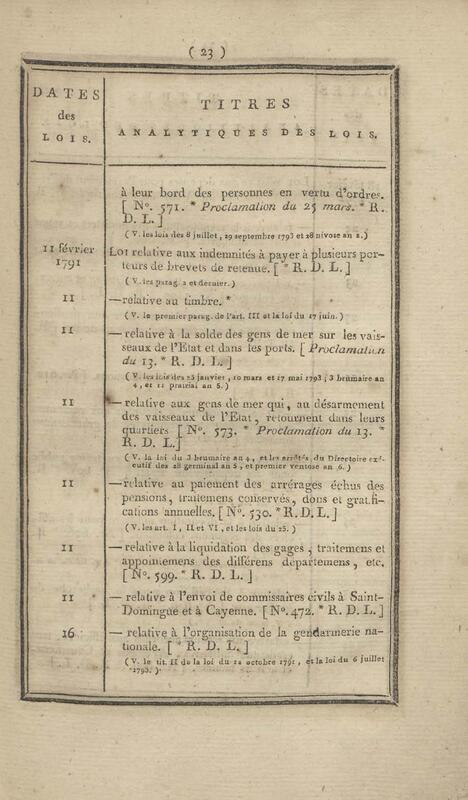 ( 23 )
DATES
des
LOIS.
TITRES
ANALYTIQUES DES LOIS.
à leur bord des personnes en vertu d'ordres.
[ N°. 571. * Proclamation du 25 mars. * R.
D. L.]
( V. les lois des 8 juillet, 29 septembre 1793 et 28 nivose an 2.)
11 février
1791
Loi relative aux indemnités à payer à plusieurs por-
teurs de brevets de retenue. [ * R. D. L. ]
( V. les parag. 2 et dernier. )
11
— relative au timbre. *
( V. le premier parag. de l'art. III et la loi du 17 juin. )
11
— relative à la solde des gens de mer sur les vais-
seaux de l'Etat et dans les ports. [ Proclamation
du 13. * R. D. L. ]
( V. les lois des 25 janvier, 10 mars et 17 mai 1793 ; 3 brumaire an
4, et 11 prairial an 5. )
11
— relative aux gens de mer qui, au désarmement
des vaisseaux de l'Etat, retournent dans leurs
quartiers [ N°. 573. * Proclamation du 13. *
R. D. L.]
( V. la loi du 3 brumaire an 4, et les arrêtés du Directoire exé-
cutif des 28 germinal an 5, et premier ventose an 6. )
11
— relative au paiement des arrérages échus des
pensions, traitemens conservés, dons et gratifi-
cations annuelles. [ N°. 530. * R. D. L. ]
( V. les art. I, II et VI, et les lois du 25. )
11
— relative à la liquidation des gages, traitemens et
appointemens des différens departemens, etc.
[ N°. 599. * R. D. L. ]
11
— relative à l'envoi de commissaires civils à Saint-
Domingue et à Cayenne. [ N°. 472. * R. D. L. ]
16
— relative à l'organisation de la gendarmerie na-
tionale. [ * R. D. L. ]
( V. le tit. II de la loi du 12 octobre 1791, et la loi du 6 juillet
1793. )